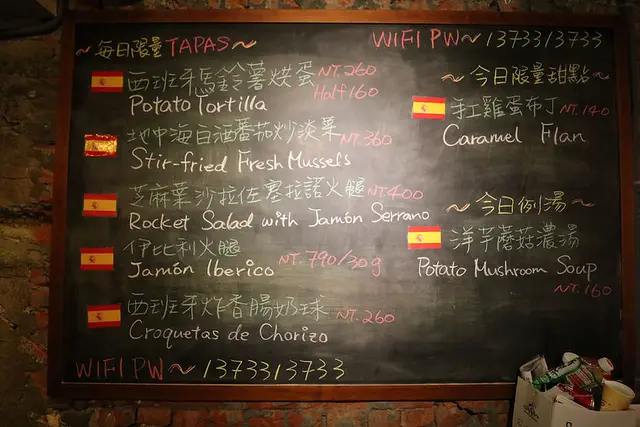 ～每日限量TAPAS～
西班牙馬鈴薯烘蛋 NT.260
Potato Tortilla Half 160
地中海白酒番茄炒淡菜 NT.360
Stir-fried Fresh Mussels
芝麻葉沙拉佐塞拉諾火腿 NT.400
Rocket Salad with Jamón Serrano
伊比利火腿
Jamón Iberico NT.790/30g
西班牙炸香腸奶球 NT.260
Croquetas de Chorizo
WIFI PW～1373313733
WIFI PW～1373313733
～今日限量甜點～
手工雞蛋布丁 NT.140
Caramel Flan
～今日例湯～
洋芋蘑菇濃湯
Potato Mushroom Soup
NT.160